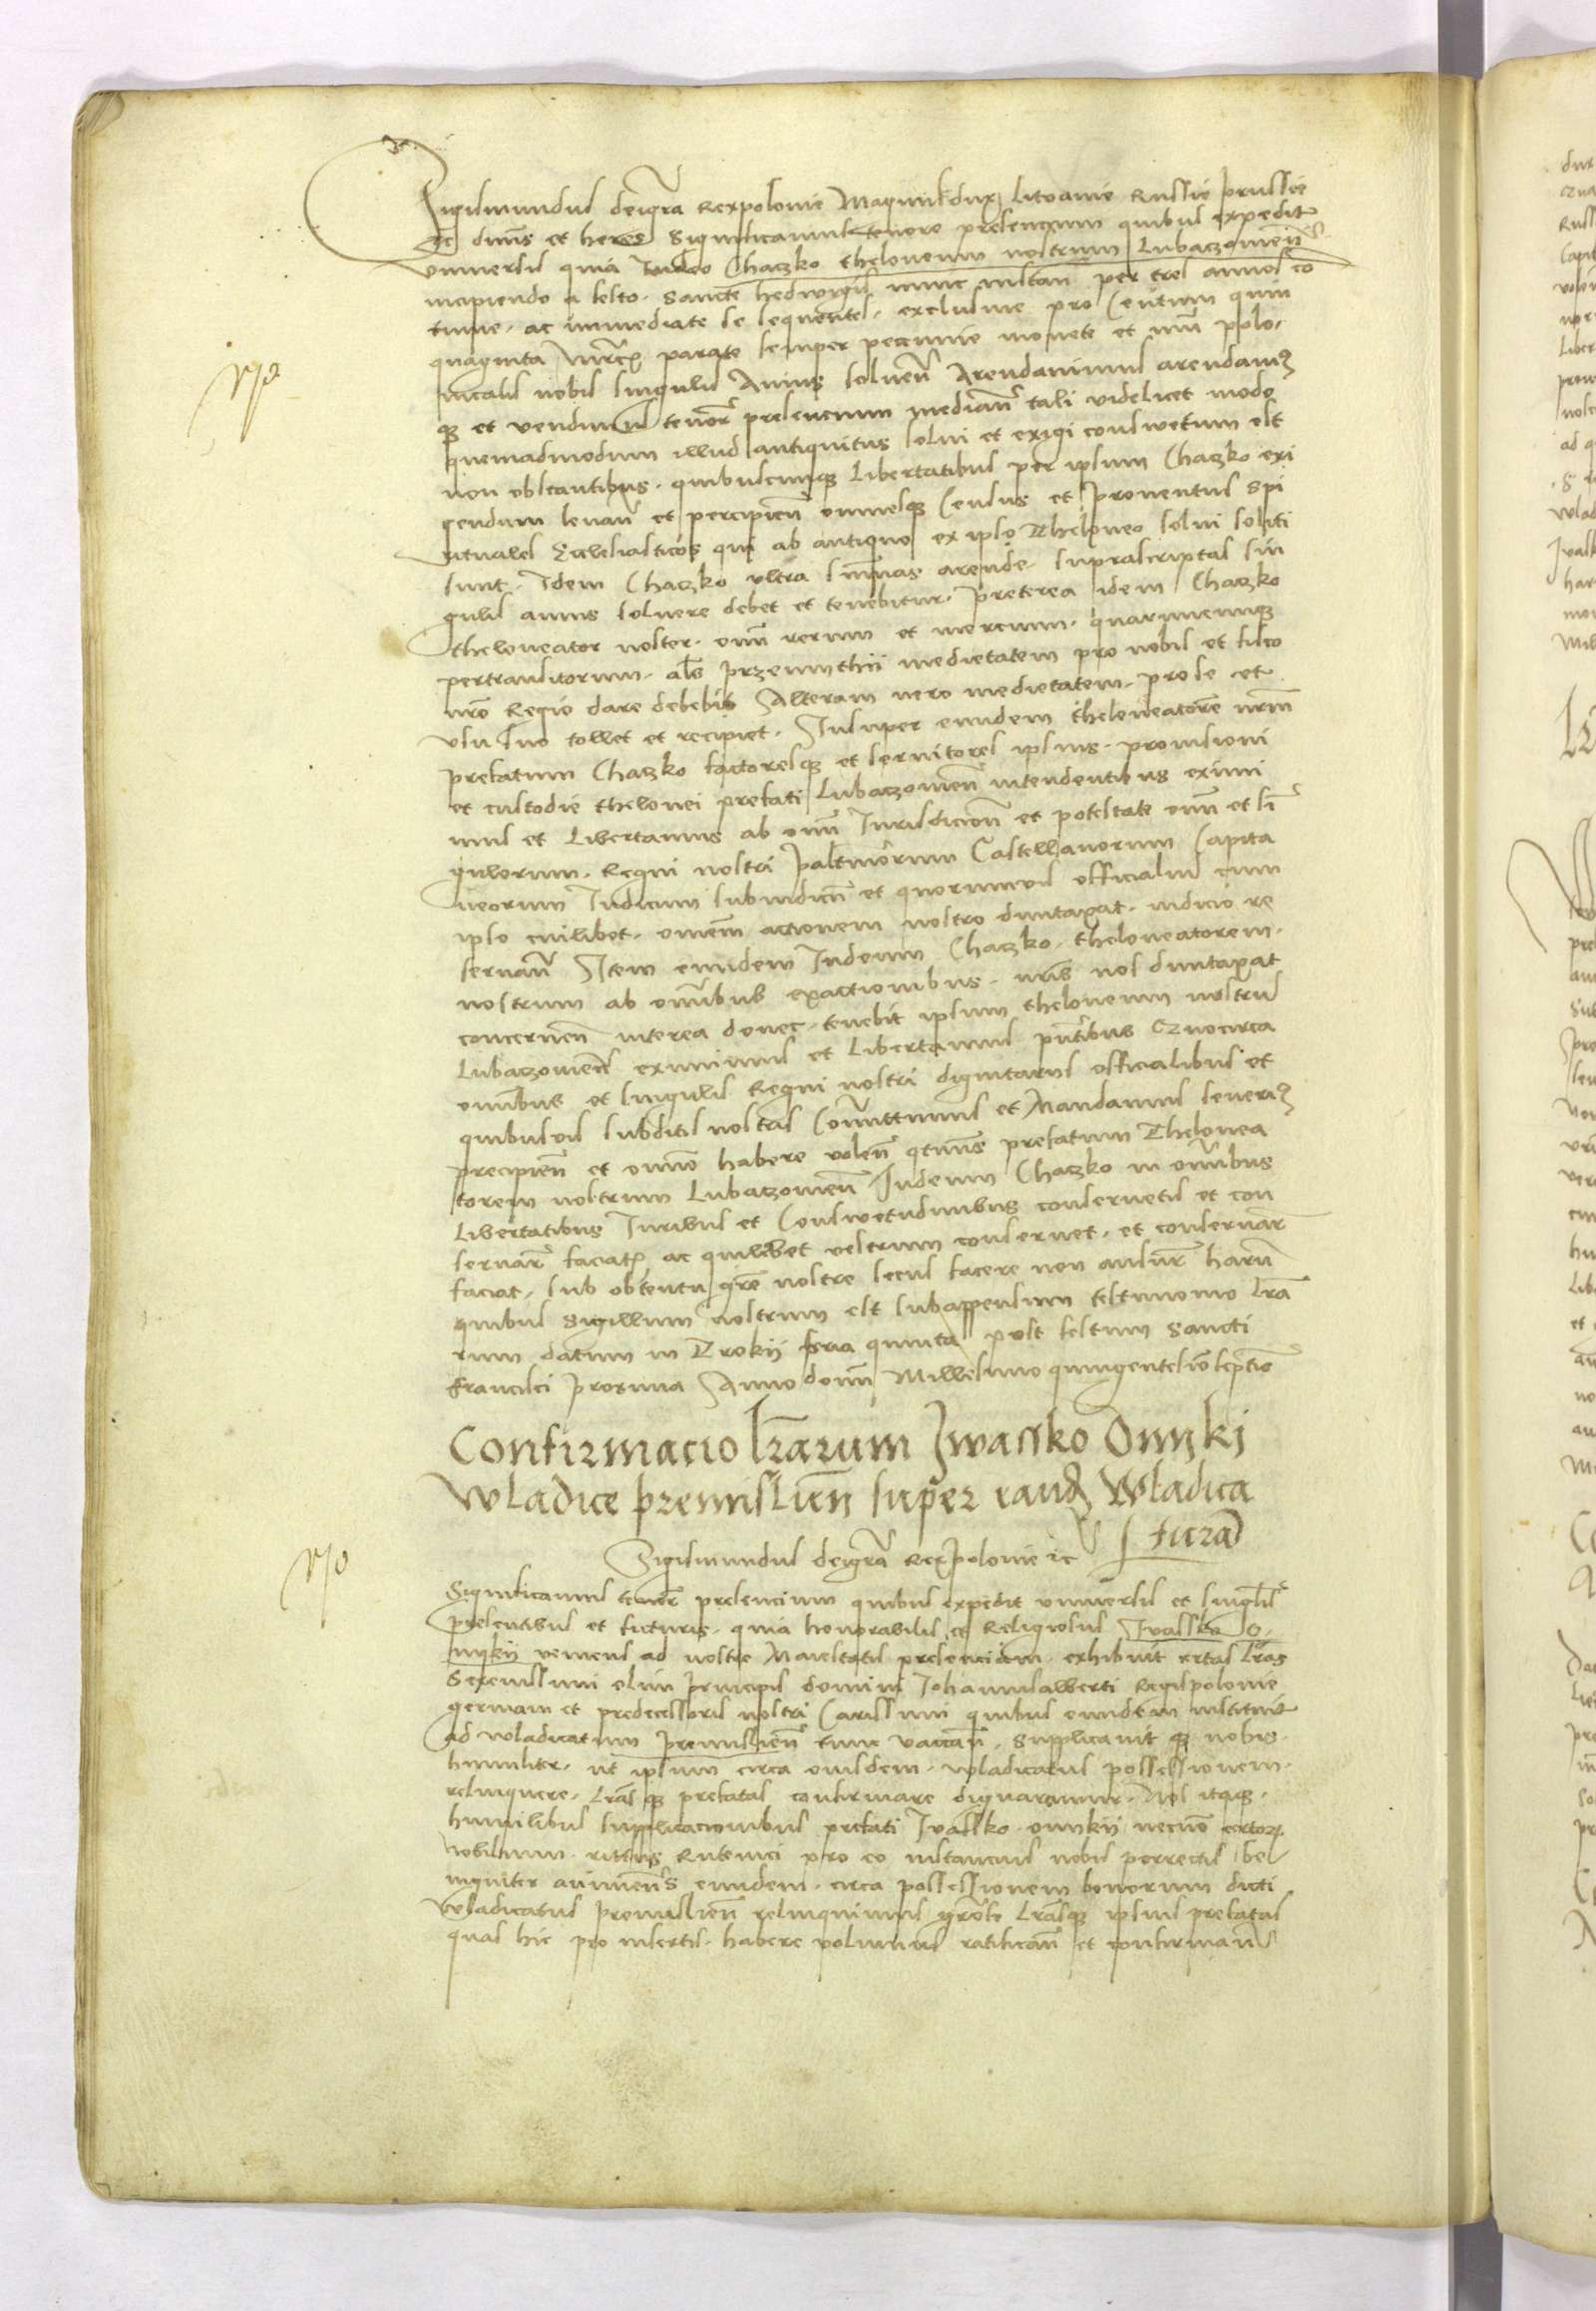 Sigismundus dei gra Rex polonie Magnus dux Litvanie Russie prussie
ac dnns et heres Significamus tenore presencium quibus expedit
vniuersis quia Iudeo Chaczko theloneum nostrum Lubaczouien
incipiendo a festo sancte hedwigis nunc instan per tres annos co
tinue ac immediate se sequentes exclusiue pro Centum quin
quaginta mrcis parate semper pecunie monete et nuri polo
nicalis nobis singulis Annis soluen Arendauimus arendam9
q3 et vendimus tenor presencium median tali videlicet modo
quemadmodum illud antiquitus solui et exigi consuetum est
non obstantibus quibuscunq3 Libertatibus per ipsum Chaczko exi
gendum leuan et percipien omnesq3 Census et prouentus Spi
rituales Ecclesiasticos qui ab antiquo ex ipso Theloneo solui soliti
sunt Idem Chaczko vltra summas arende suprascriptas sin
gulis annis soluere debet et tenebitur preterea idem Chaczko
theloneator noster omn rerum et mercium quarumcunq3
pertransitorum als przemythii medietatem pro nobis et fisco
nro Regio dare debebit Alteram vero medietatem pro se et
vsu suo tollet et recipiet Insuper eundem theloneatorem nrm
prefatum Chaczko factoresq3 et seruitores ipsius prouisioni
et custodie thelonei prefati Lubaczouien intendentibus eximi
mus et Libertamus ab omn Iurisdicion et potestate omn et sin
gulorum Regni nostri palatinorum Castellanorum Capita
neorum Iudicum subiudicu et quorumuis officialiu cum
ipso cuilibet omnem actionem nostro duntaxat iudicio re
seruan Item eundem Iudeum Chaczko theloneatorem
nostrum ab omnibus exactionibus nris nos duntaxat
concernen interea donec tenebit ipsum theloneum nostru
Lubaczouien eximimus et Libertamus pntibus Quocirca
omnibus et singulis Regni nostri dignitariis officialibus et
quibusuis subditis nostris Committimus et Mandamus seueri9
precipien et omnino habere volen qtnus prefatum Thelonea
torem nostrum Lubaczouien Iudeum Chaczko in omnibus
Libertatibus Iuribus et Consuetudinibus conseruetis et con
seruar faciatis ac quilibet vestrum conseruet et conseruar
faciat sub obtentu gre nostre secus facere non ausur harum
quibus Sigillum nostrum est subappensum testimonio lra
rum datum in Trokii feria quinta post festum sancti
francisci proxima Anno domi Millesimo quingentesimo septimo
Confirmacio lrarum Iwassko Onyki
wladice premislien super eand Wladica
turam
Sigismundus dei gra Rex polonie ic
Significamus tenor presencium quibus expedit vniuersis et singlis
presentibus et futuris quia honorabilis et Religiosus Ivassko O
nykii veniens ad nostre Maiestatis presenciam exhibuit certas lras
Serenissimi olim principis domini Iohannisalberti Regis polonie
germani et predecessoris nostri Carissimi quibus eundem instituit
ad wladicatum premislien tunc vacan Supplicauit q3 nobis
humiliter ut ipsum circa eiusdem wladicatus possessionem
relinquere lras q3 prefatas confirmare dignaremur Nos itaq3
humilibus supplicacionibus prefati Ivassko onykii necno certor
nobilium rittus Rutenici pro eo instanciis nobis porrectis be
nigniter annuentes eundem circa possessionem bonorum dicti
wladicatus premislien relinquimus lrasq3 ipsius prefatas
quas hic pro insertis habere volumus ratifican et confirman